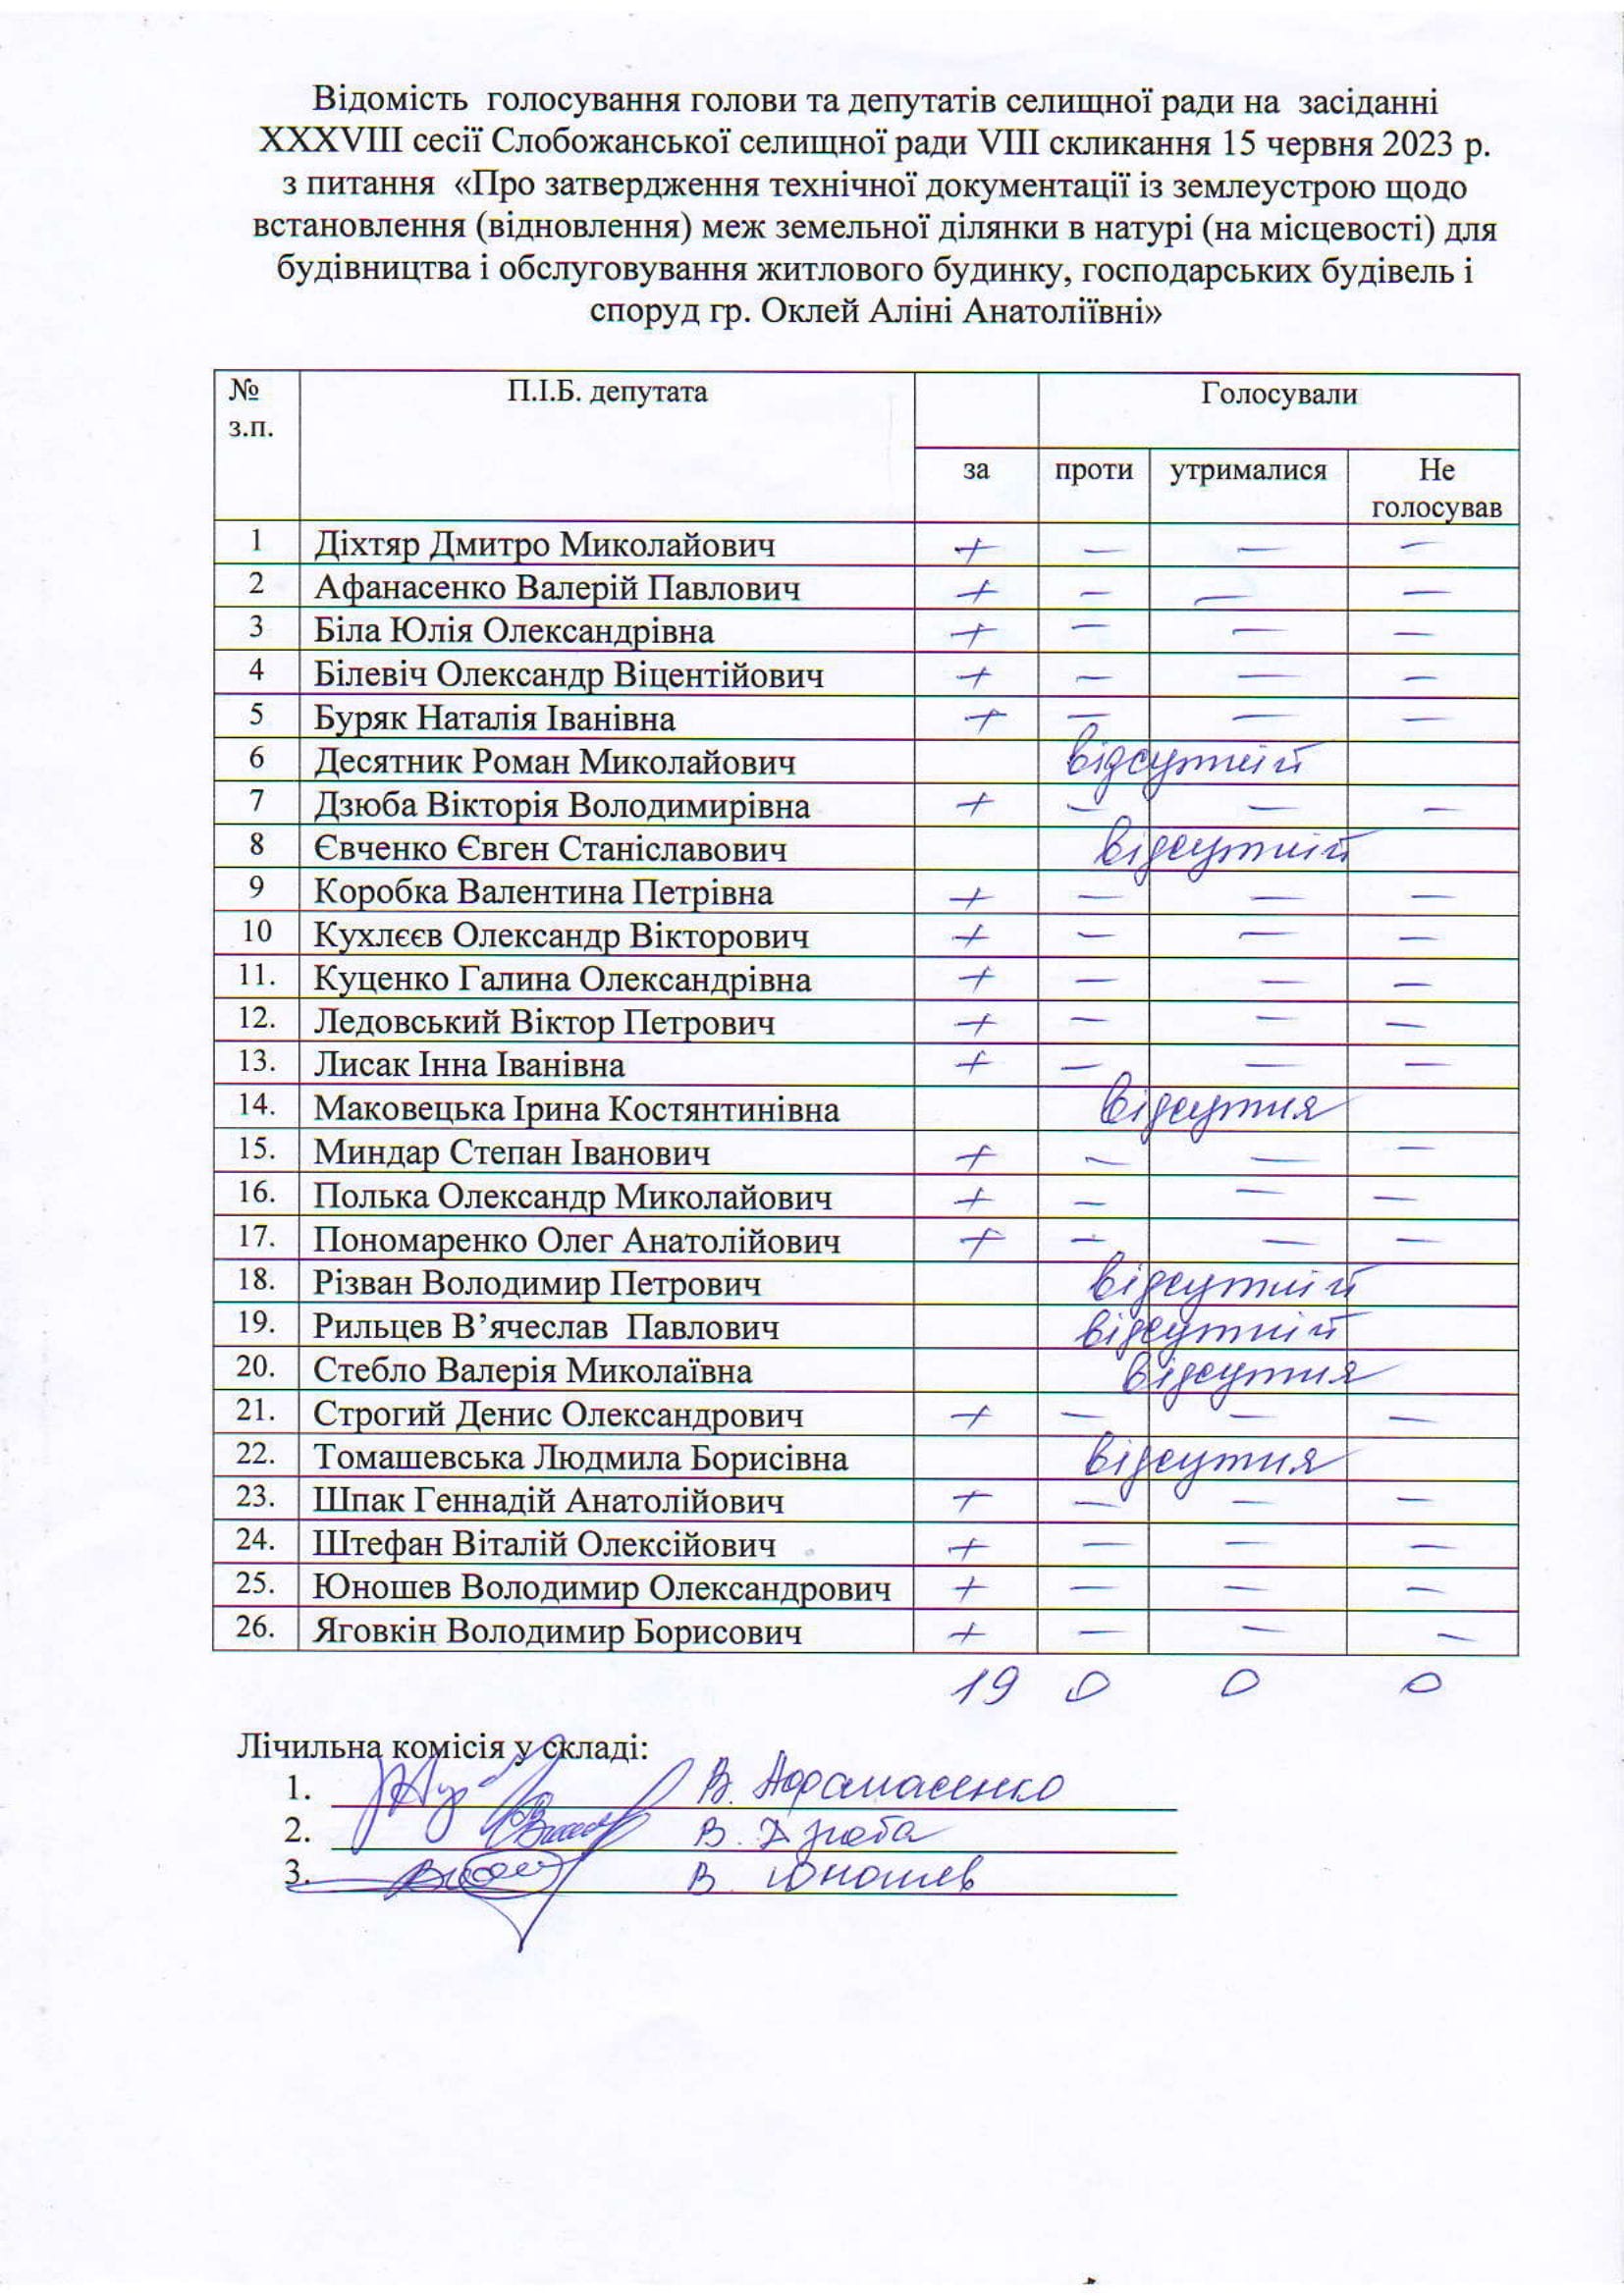 Відомість голосування голови та депутатів селищної ради на засіданні
XXXVIII сесії Слобожанської селищної ради VIII скликання 15 червня 2023 р.
з питання «Про затвердження технічної документації із землеустрою щодо
встановлення (відновлення) меж земельної ділянки в натурі (на місцевості) для
будівництва і обслуговування житлового будинку, господарських будівель і
споруд гр. Оклей Аліні Анатоліївні»
№ з.п. П.І.Б. депутата Голосували
за проти утрималися Не голосував
1 Діхтяр Дмитро Миколайович + — — —
2 Афанасенко Валерій Павлович + — — —
3 Біла Юлія Олександрівна + — — —
4 Білевіч Олександр Віцентійович + — — —
5 Буряк Наталія Іванівна + — — —
6 Десятник Роман Миколайович відсутній
7 Дзюба Вікторія Володимирівна + — — —
8 Євченко Євген Станіславович відсутній
9 Коробка Валентина Петрівна + — — —
10 Кухлєєв Олександр Вікторович + — — —
11. Куценко Галина Олександрівна + — — —
12. Ледовський Віктор Петрович + — — —
13. Лисак Інна Іванівна + — — —
14. Маковецька Ірина Костянтинівна відсутня
15. Миндар Степан Іванович + — — —
16. Полька Олександр Миколайович + — — —
17. Пономаренко Олег Анатолійович + — — —
18. Різван Володимир Петрович відсутній
19. Рильцев В’ячеслав Павлович відсутній
20. Стебло Валерія Миколаївна відсутня
21. Строгий Денис Олександрович + — — —
22. Томашевська Людмила Борисівна відсутня
23. Шпак Геннадій Анатолійович + — — —
24. Штефан Віталій Олексійович + — — —
25. Юношев Володимир Олександрович + — — —
26. Яговкін Володимир Борисович + — — —
19 0 0 0
Лічильна комісія у складі:
1. В. Афанасенко
2. В. Дзюба
3. В. Юношев